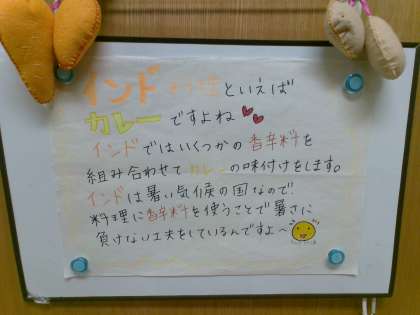 インド料理といえば
カレーですよね
インドではいくつかの香辛料を
組み合わせてカレーの味付けをします。
インドは暑い気候の国なので
料理に香辛料を使うことで暑さに
負けない工夫をしているんですよ~